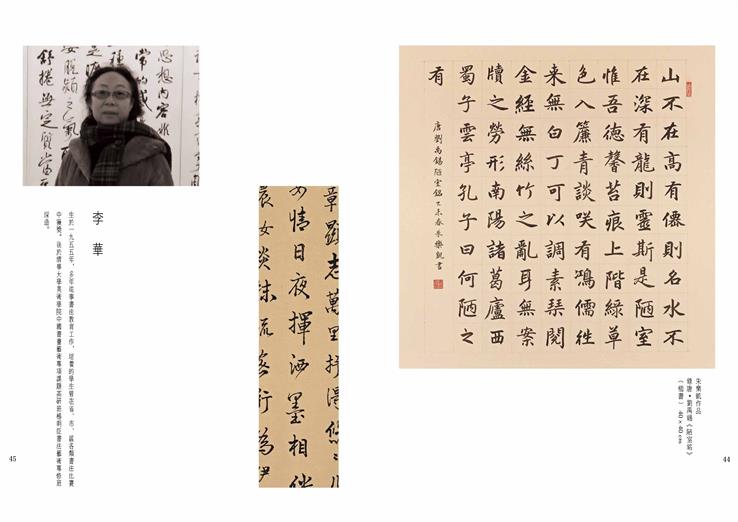 山不在高有僊則名水不
在深有龍則靈斯是陋室
惟吾德馨苔痕上階綠草
色入簾青談咲有鴻儒往
来無白丁可以調素琴閱
金經無絲竹之亂耳無案
牘之勞形南陽諸葛廬西
蜀子雲亭孔子曰何陋之
有
唐劉禹錫陋室銘乙未春朱樂凱書
朱樂凱作品
錄唐•劉禹錫《陋室銘》
（楷書） 40×40 cm
44
萬里抒
情日夜揮洒墨相伴
流 行為伊
思想内容
常的成
舒捲無定質當
李 華
生於一九五五年，多年從事書法教育工作，培養的學生曾在省、市、區各類書法比賽
中獲獎。後於清華大學美術學院中國書畫藝術專項課題高研班楊明臣書法藝術專修班
深造。
45